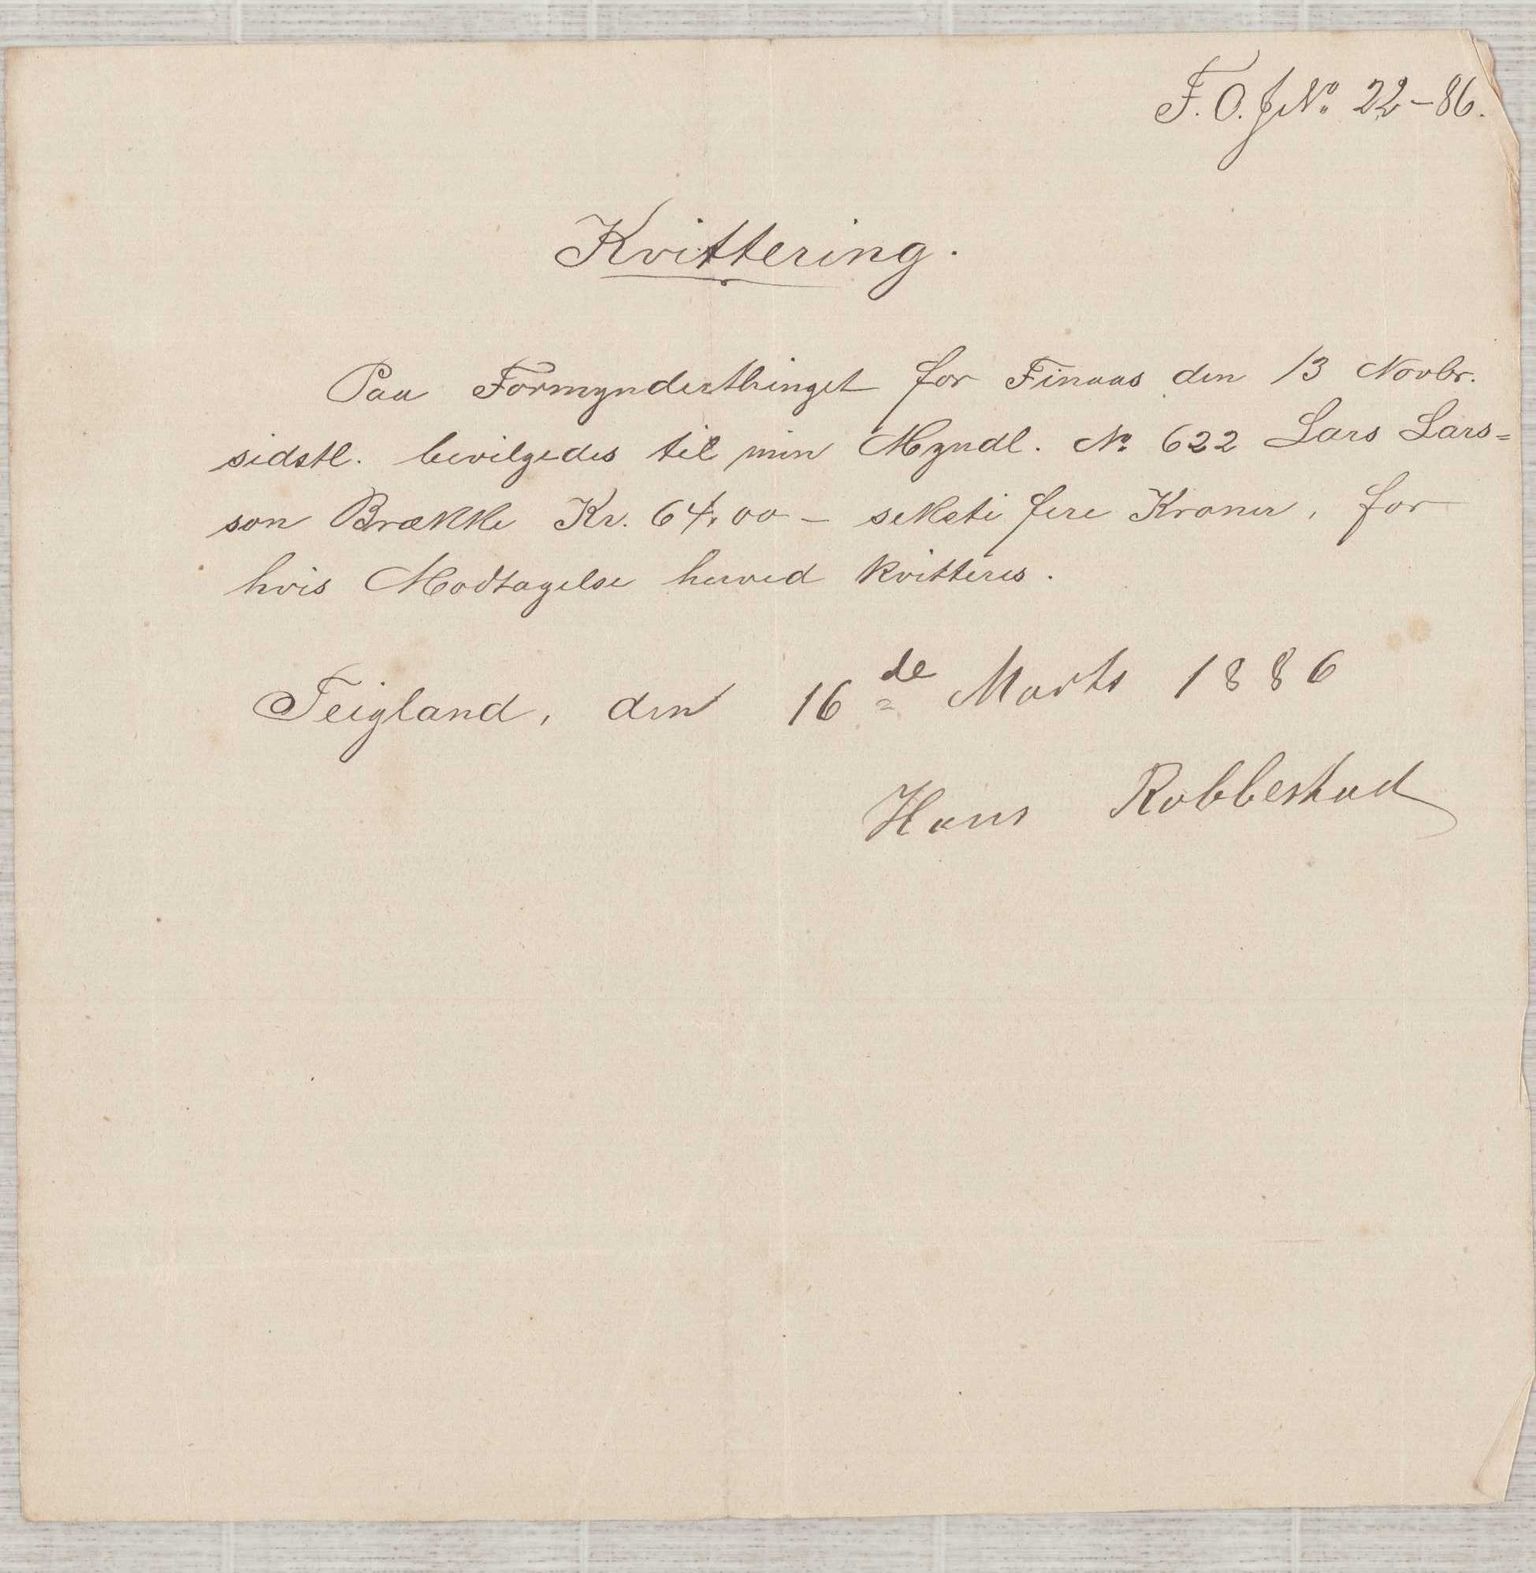 F. O. J No. 22-86.
Kvittering.
Paa Formynderthinget for Finaas den 13 Novbr.
sidstl. bevilgedes til min Myndl. No 622 Lars Lars=
son Brække Kr. 64,00 - seksti fire Kroner, for
hvis Modtagelse herved kvitteres.
Teigland, den 16de Marts 1886
Hans Robbestad